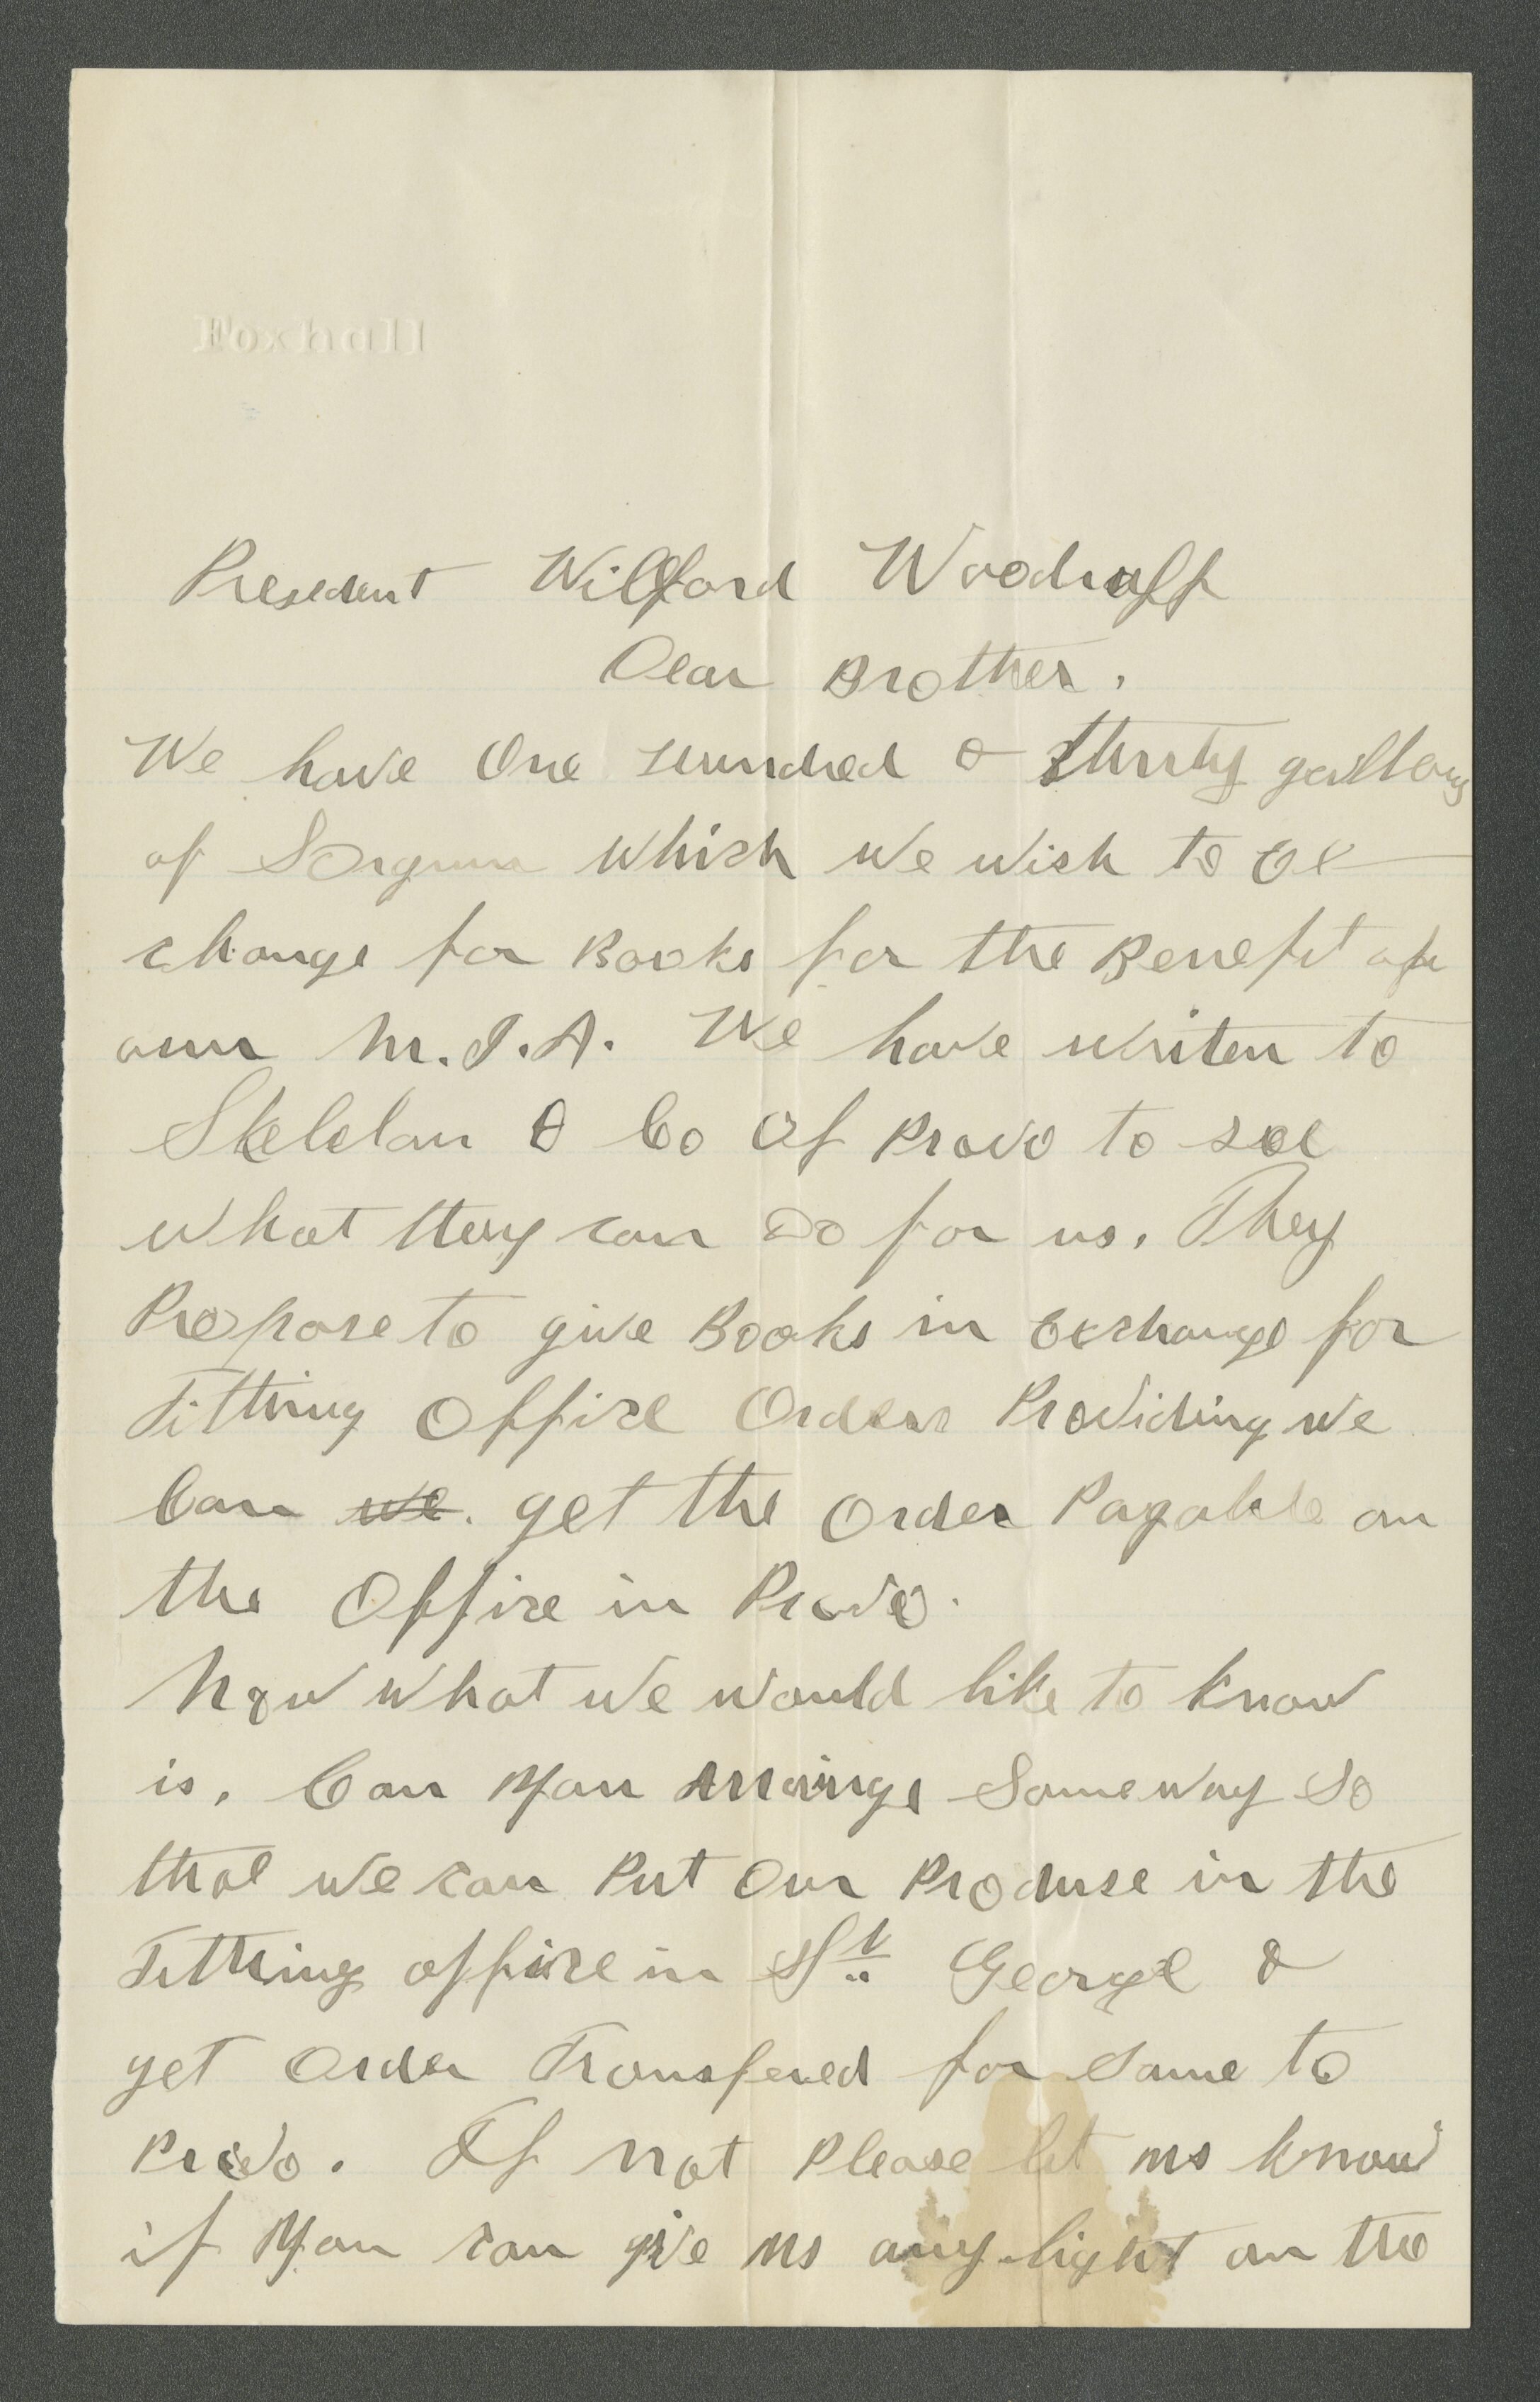 Foxhall
Presedent Wilford Woodruff
Dear Brother,
We have One Hundred & thirty gallons
of Sorgum which we wish to ex
change for Books for the Benefit of
our M.I.A. We have writen to
Skelelon & Co Of Provo to see
what they can do for us, They
Propose to give Books in exchange for
Tithing Office Orders Providing we
Can we. get the Order Payable on
the Office in Provo.
Now what we would like to know
is, Can you arrange Some way so
that we can Put our Produce in the
Tithing office in St George &
get Order Transfered for same to
Provo. If not Please let us know
if you can give us any light on the